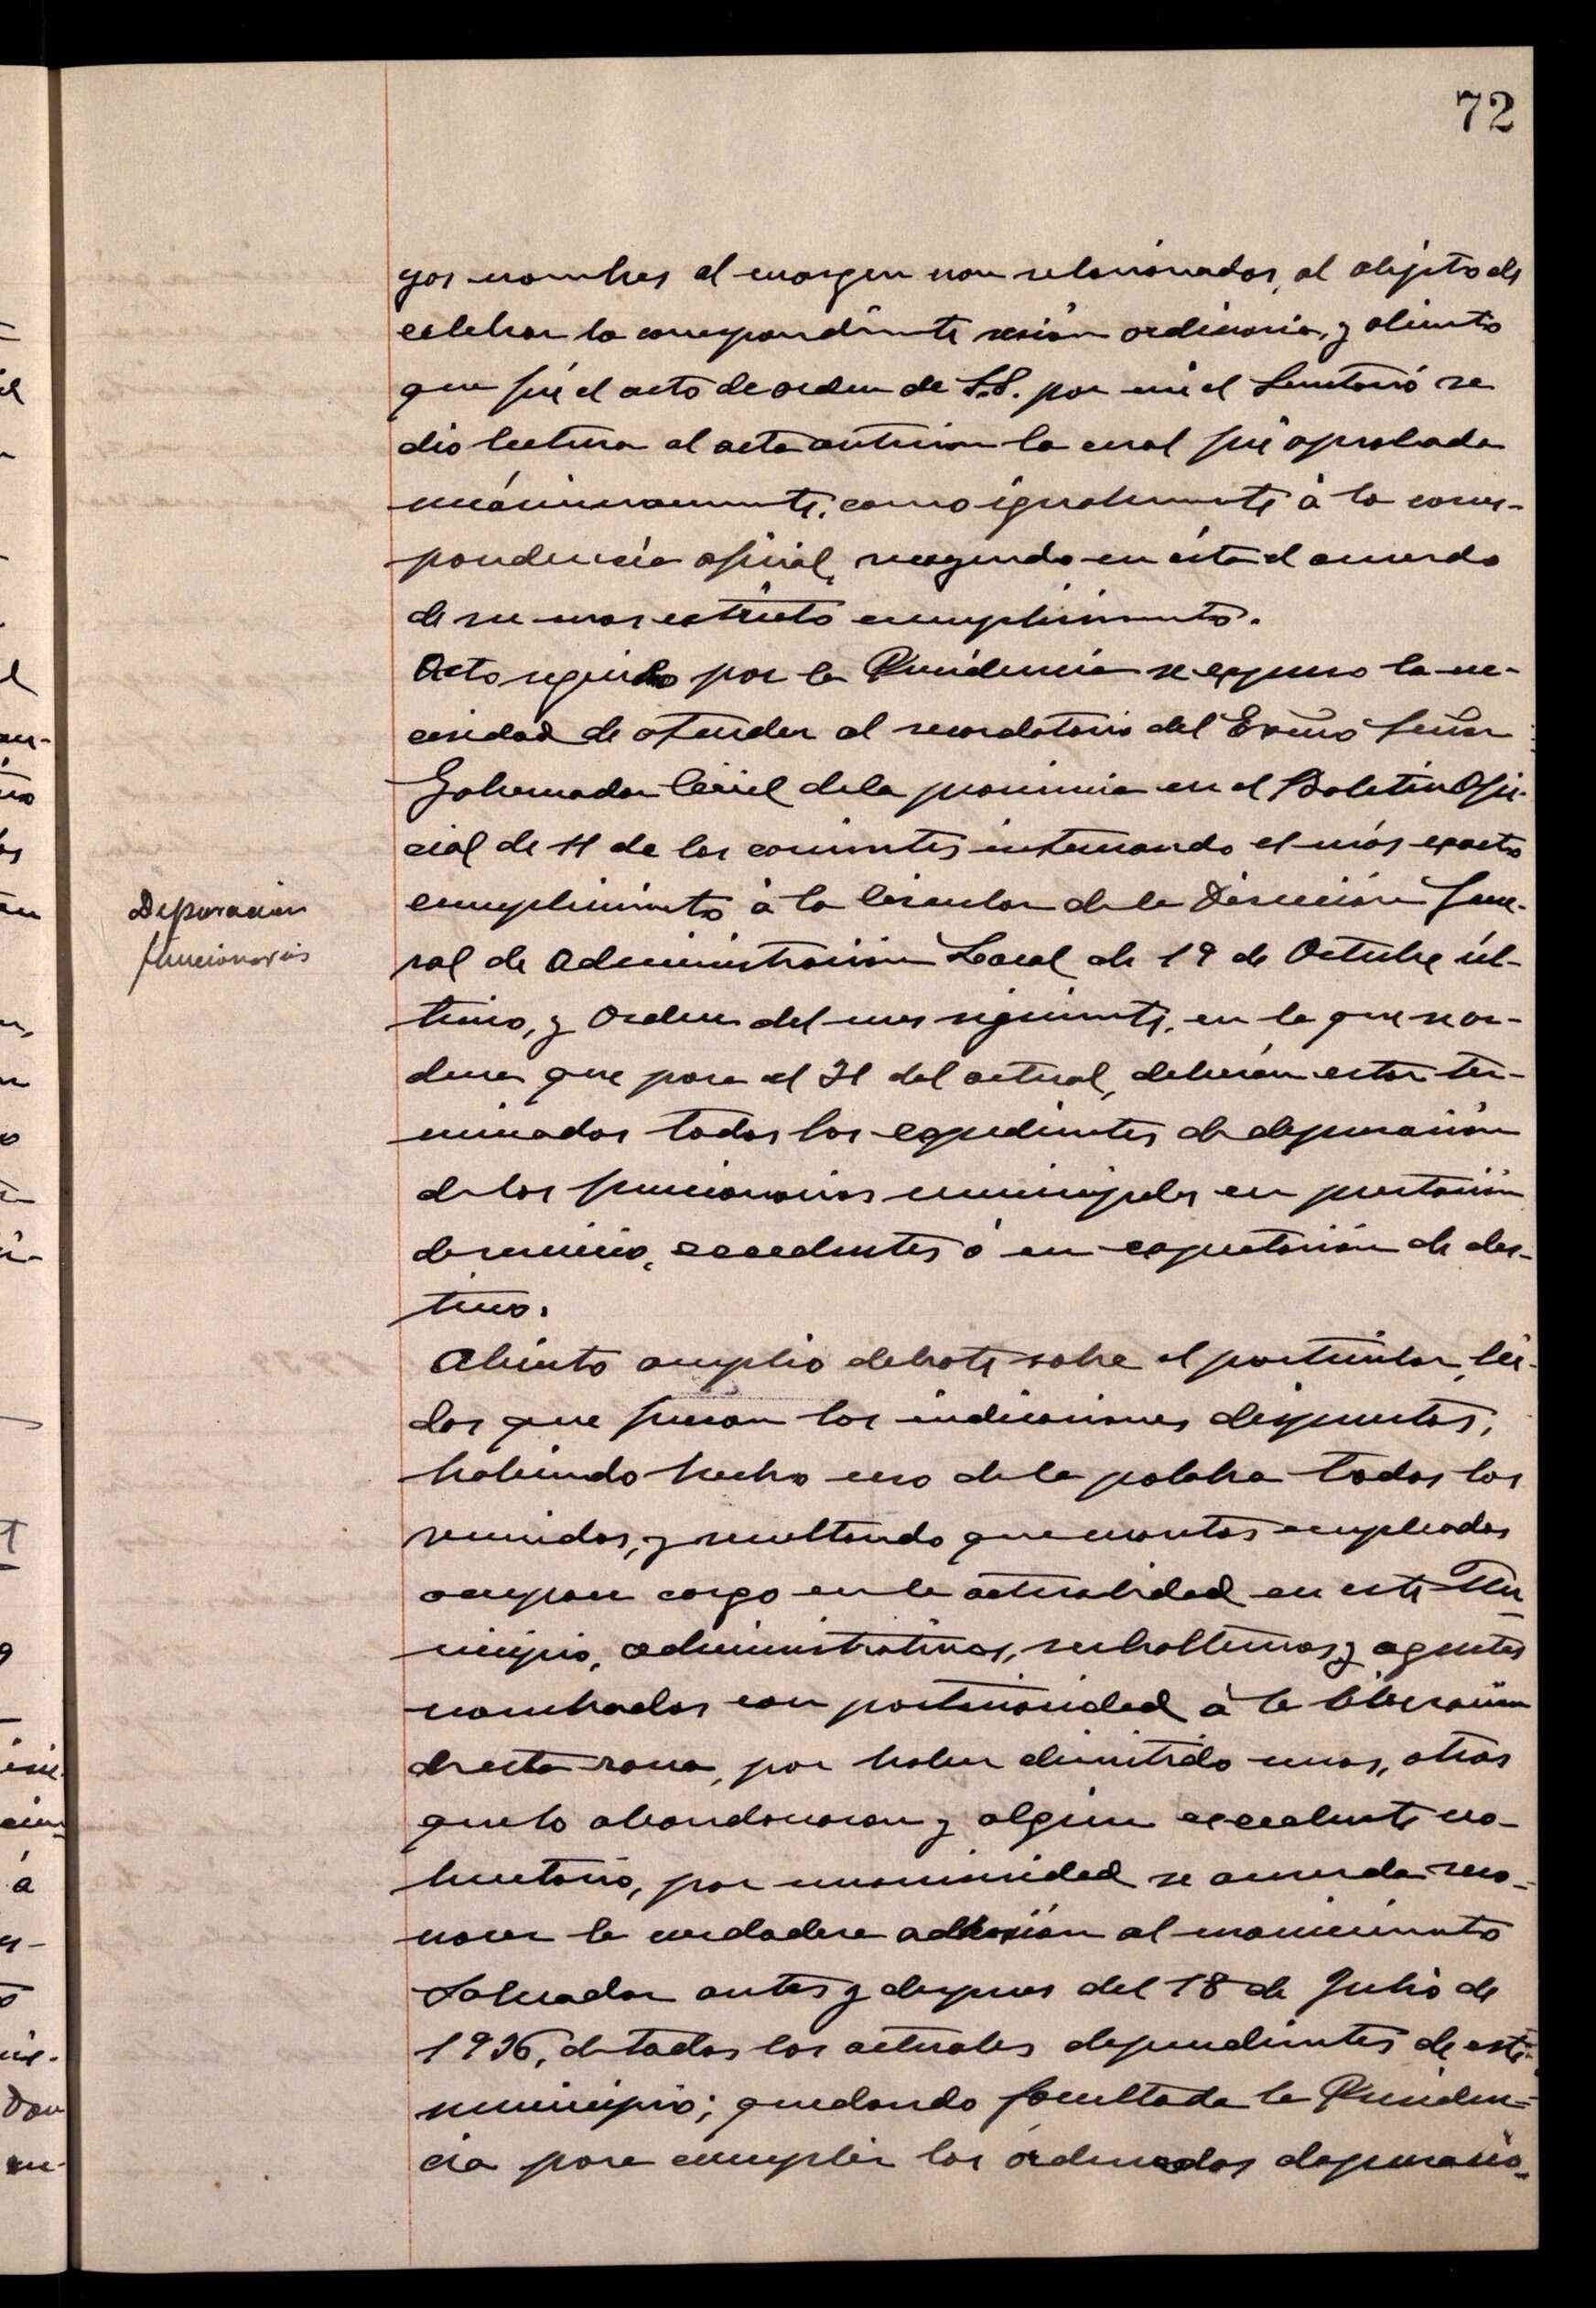 72
yos nombres al margen van relacionados, al objeto de
celebrar la correspondiente sesión ordinaria, y abierto
que fué el acto de orden de S.S. por mi el Secretario se
dio lectura al acta anterior la cual fué aprobada
unánimemente, como igualmente á la corres-
pondencia oficial, recayendo en ésta el acuerdo
de su mas estricto cumplimiento.
Acto seguido por la Presidencia se expuso la ne-
cesidad de atender al recordatorio del Exmo Señor
Gobernador Civil de la provincia en el Boletin Ofi-
cial de 11 de los corrientes interesando el más exacto
Depuracion
funcionarios
cumplimiento á la Circular de la Dirección Gene-
ral de Administracion Local de 19 de Octubre úl-
timo, y Orden del mes siguiente, en la que se or-
dena que para el 31 del actual, deberán estar ter-
minados todos los expedientes de depuración
de los funcionarios municipales en prestación
de servicio, excedentes ó en expectación de des-
tino.
Abierto amplio debate sobre el particular, leí-
das que fueron las indicaciones dispuestas,
habiendo hecho uso de la palabra todos los
reunidos, y resultando que cuantos empleados
ocupan cargo en la actualidad en este Mu
nicipio, administrativos, subalternos y agentes
nombrados con posterioridad á la liberación
de esta zona, por haber dimitido unos, otros
que lo abandonaron y algun excedente vo-
luntario, por unanimidad se acuerda reco-
nocer la verdadera adhesión al movimiento
Salvador antes y despues del 18 de Julio de
1936, de todos los actuales dependientes de este
municipio; quedando facultada la Presiden-
cia para cumplir las ordenadas depuracio-